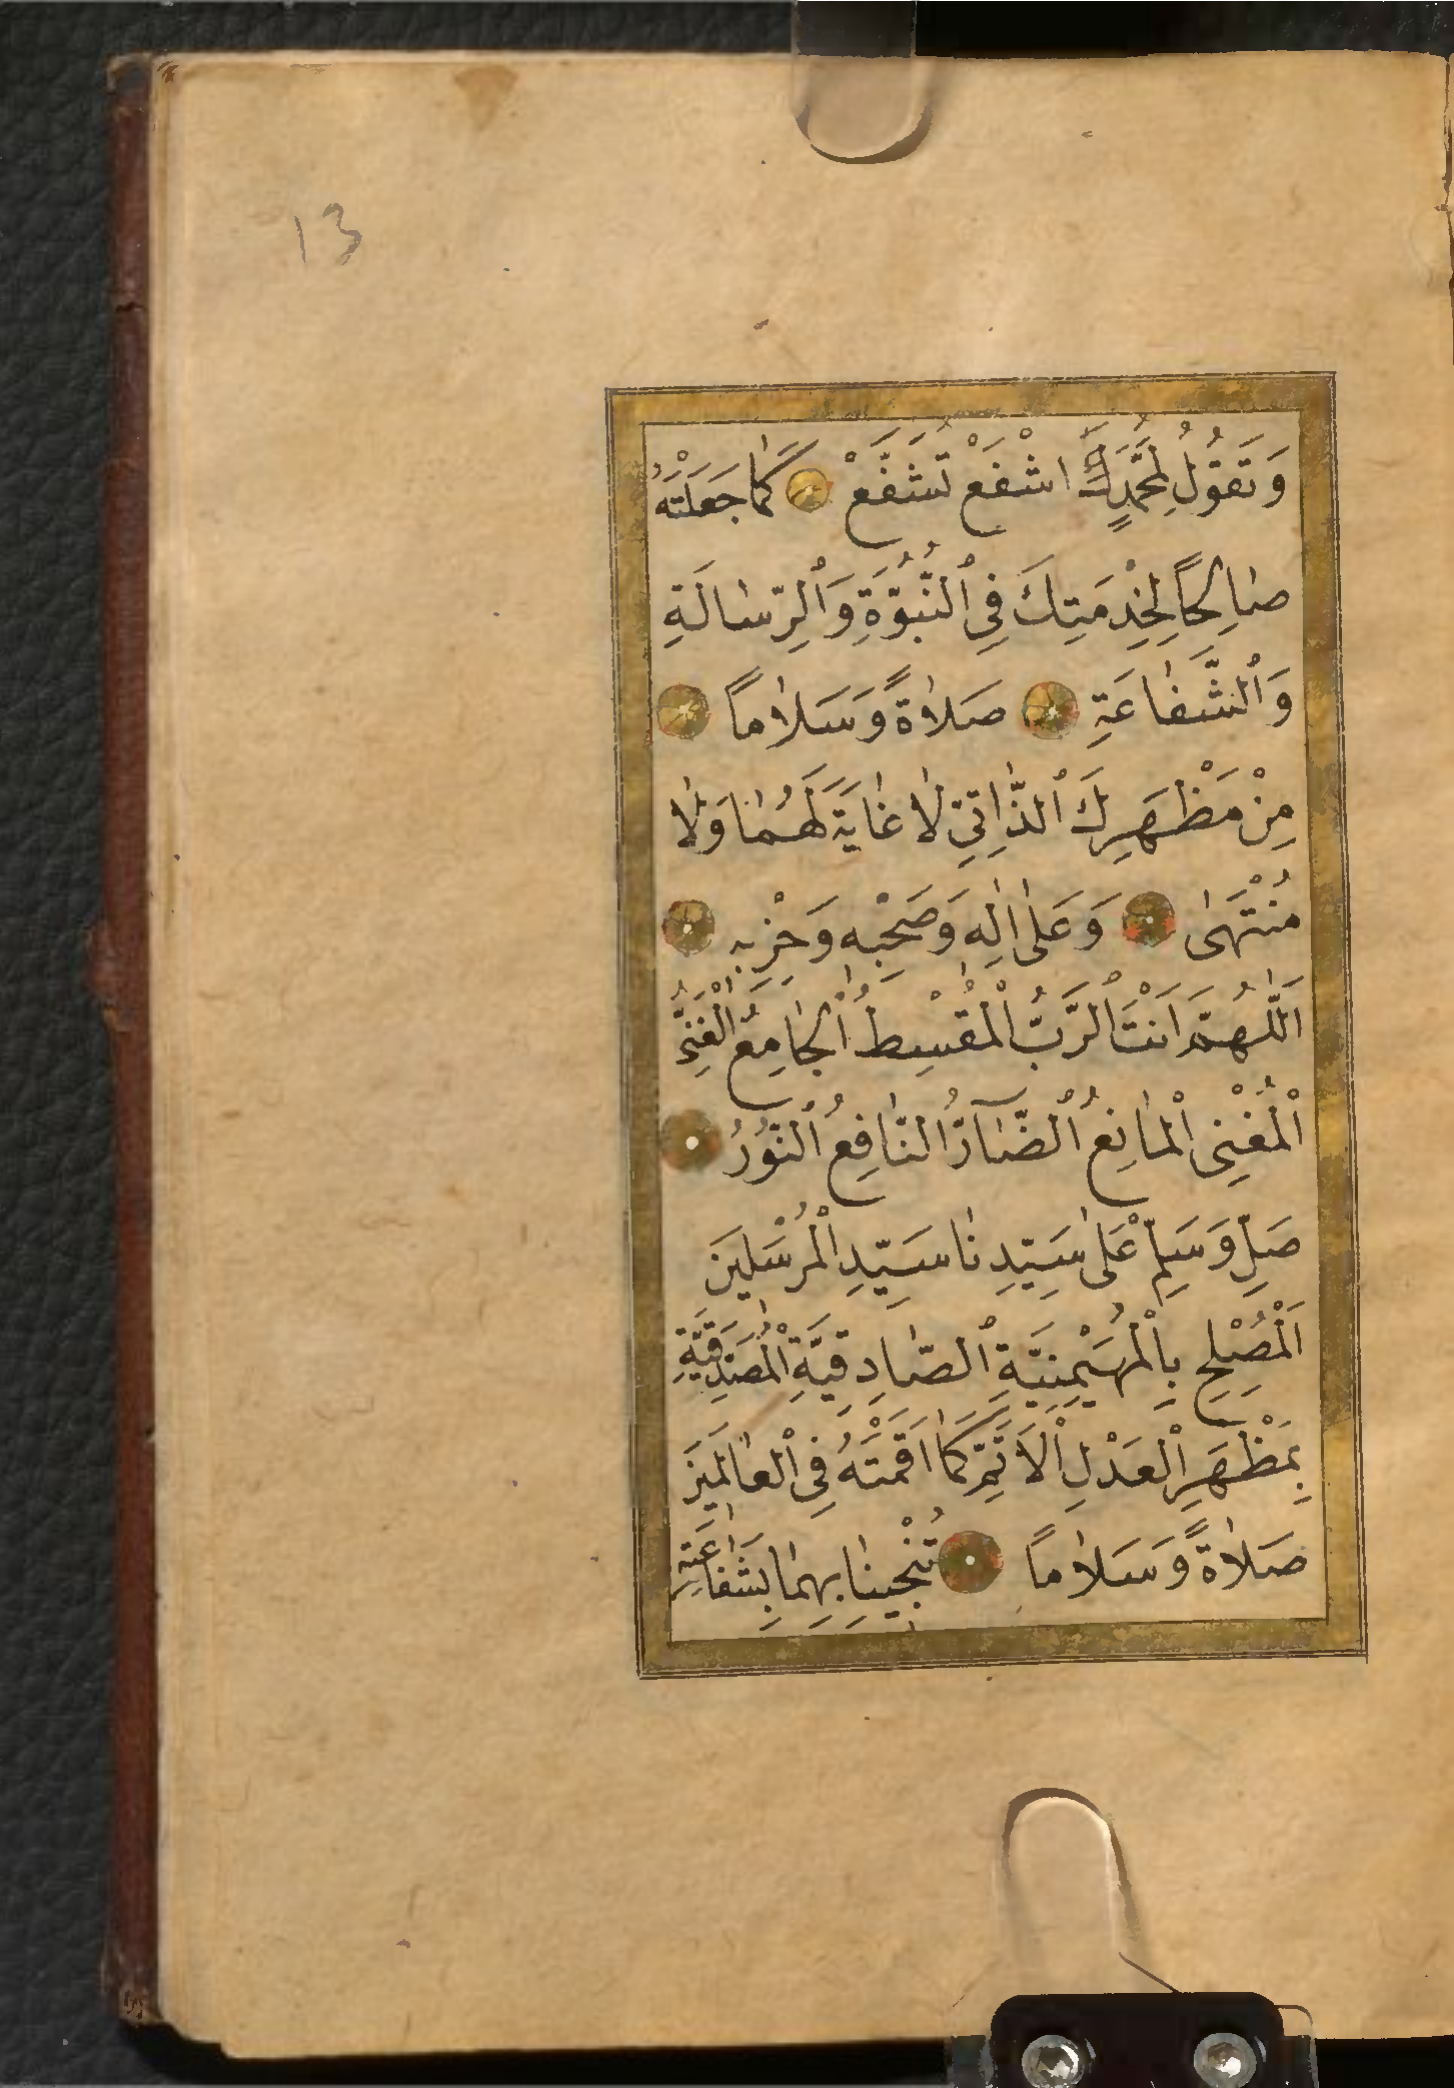 13
وَتَقُولُ لِمُحَمَّدِكَ اشْفَعْ تُشَفَّعْ كَمَا جَعَلْتَهُ
صَالِحًا لِخِدْمَتِكَ فِي النُّبُوَّةِ وَالرِّسَالَةِ
وَالشَّفَاعَةِ صَلَاةً وَسَلَامًا
مِنْ مَظْهَرِكَ الذَّاتِيِّ لَا غَايَةَ لَهُمَا وَلَا
مُنْتَهَى وَعَلَى اٰلِهِ وَصَحْبِهِ وَحِزْبِهِ
اَللّٰهُمَّ اَنْتَ الرَّبُّ الْمُقْسِطُ الْجَامِعُ الْغَنِيُّ
الْمُغْنِي الْمَانِعُ الضَّآرُّ النَّافِعُ النُّورُ
صَلِّ وَسَلِّمْ عَلَى سَيِّدِنَا سَيِّدِ الْمُرْسَلِينَ
اَلْمُصْلِحِ بِالْمُهَيْمِنِيَّةِ الصَّادِقِيَّةِ الْمُصَدِّقِيَّةِ
بِمَظْهَرِ الْعَدْلِ الْاَتَمِّ كَمَا اَقَمْتَهُ فِي الْعَالَمِينَ
صَلَاةً وَسَلَامًا تُنْجِينَا بِهِمَا بِشَفَاعَتِهِ